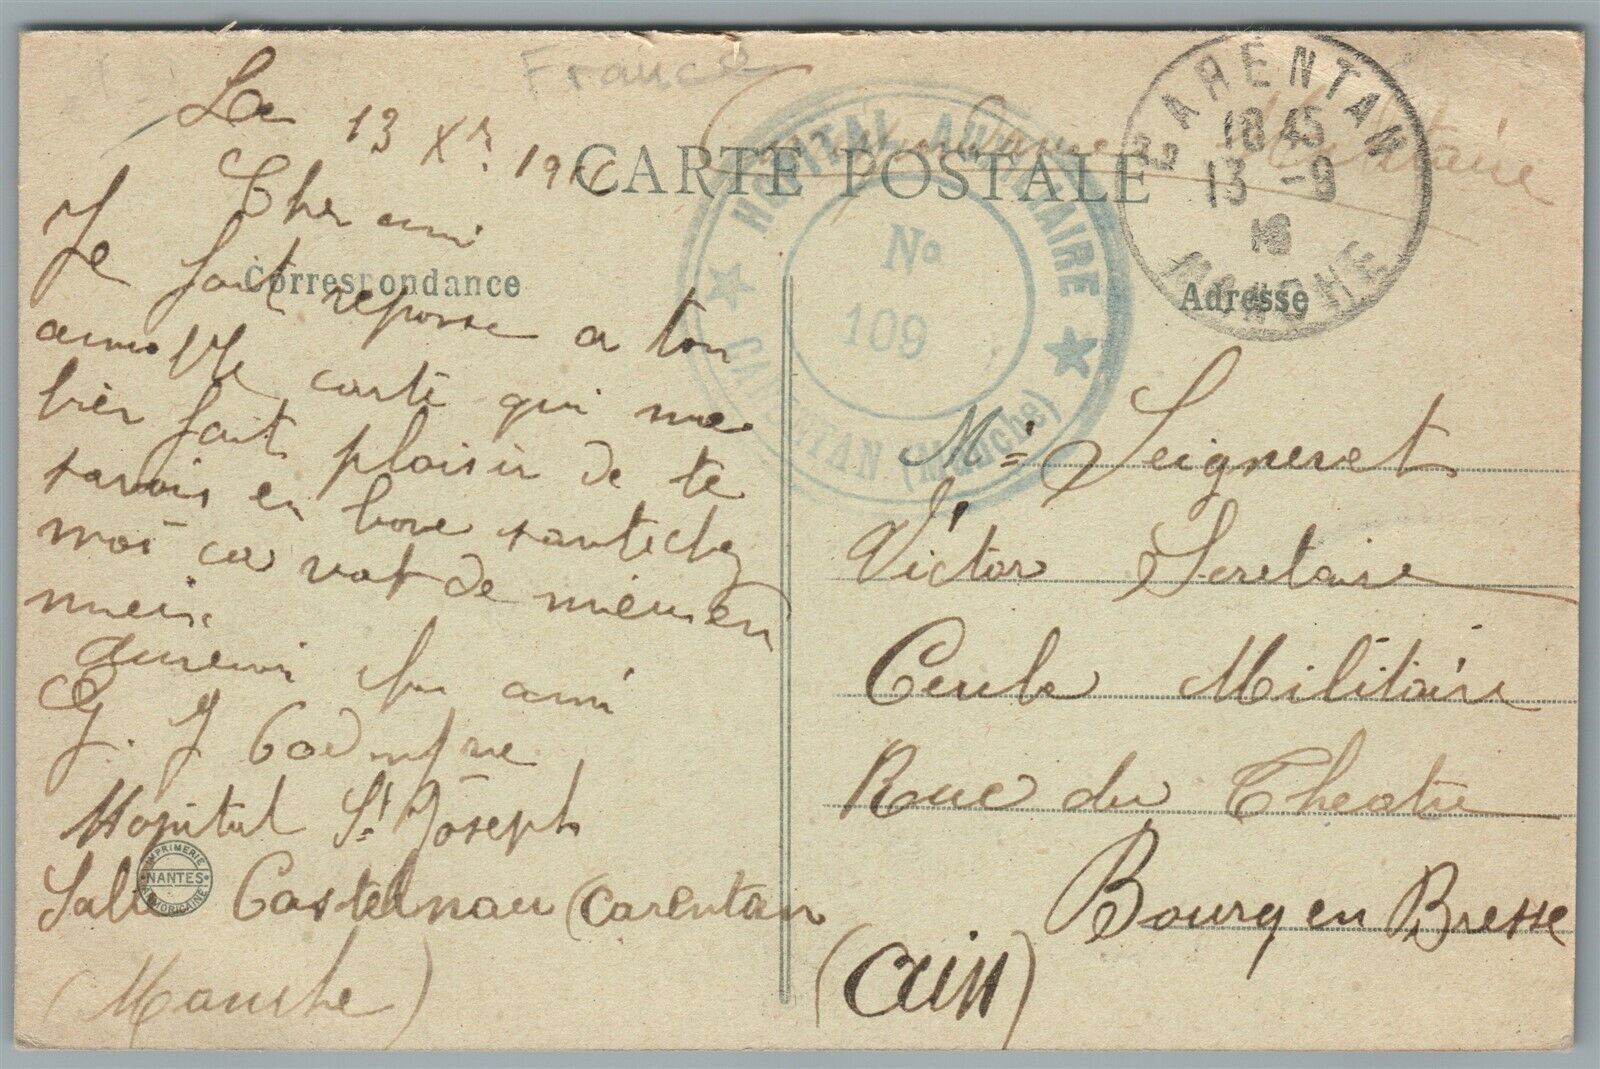 France
Le 13 Xbr 1916
CARTE POSTALE
Correspondance
Adresse
Cher ami
Je fait reponse a ton
aimable carte qui me
bien fait plaisir de te
savoir en bone sante chez
moi ca vat de mieu en
mieix
ton ami
G. J Godenfre
Hopital St Joseph
Salle Castelnau (Carentan
(Manche)
IMPRIMERIE
NANTES
ARMORICAINE
HOPITAL AUXILIAIRE
No
109
CARENTAN (Manche)
CARENTAN
18 45
13 -9
16
MANCHE
Militaire
Mr Seigneret
Victor Secretaire
Cercle Militaire
Rue du Theatre
Bourg en Bresse
(Ain)